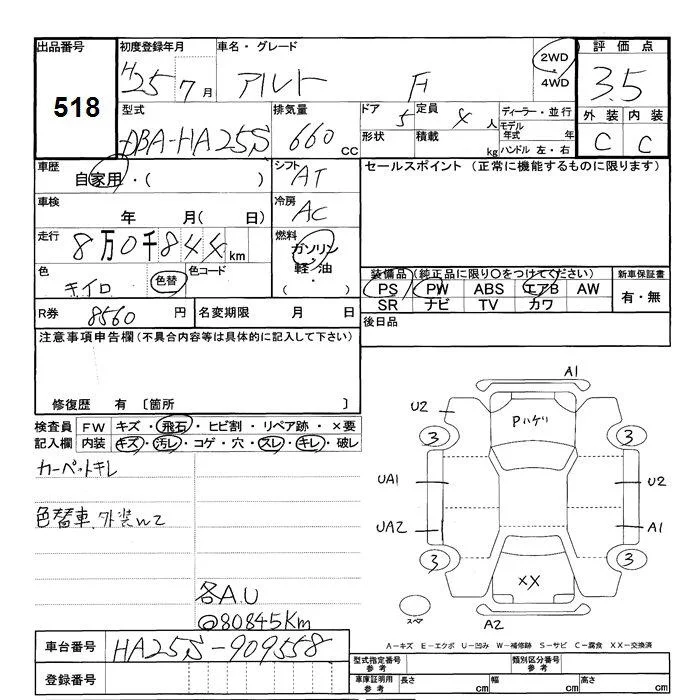 出品番号 初度登録年月 車名・グレード 評価点
518 H25年7月 アルト F 2WD 4WD 3.5
型式 排気量 ドア 定員 ディーラー・並行 外装 内装
DBA-HA25S 660cc 5 4人 モデル年式 年 C C
形状 積載 kg ハンドル 左・右
車歴 自家用・( ) シフト AT セールスポイント (正常に機能するものに限ります)
車検 年 月( 日) 冷房 AC
走行 8万0千844km 燃料 ガソリン・軽油・( )
色 キイロ 色替 色コード 装備品(純正品に限り○をつけてください) 新車保証書
PS PW ABS エアB AW 有・無
SR ナビ TV カワ
R券 8560円 名変期限 月 日 後日品
注意事項申告欄(不具合内容等は具体的に記入して下さい)
修復歴 有 〔箇所 〕
検査員 FW キズ・飛石・ヒビ割・リペア跡・×要
記入欄 内装 キズ・汚レ・コゲ・穴・スレ・キレ・破レ
カーペットキレ
色替車、外装W2
各A.U
@80845Km
A1
U2 Pハゲリ
3 3
UA1 U2
UA2 A1
3 3
XX
スペア A2
A-キズ E-エクボ U-凹み W-補修跡 S-サビ C-腐食 XX-交換済
車台番号 HA25S-909558
登録番号
型式指定番号 参考 類別区分番号 参考
車庫証明用 参考 長さ cm 幅 cm 高さ cm